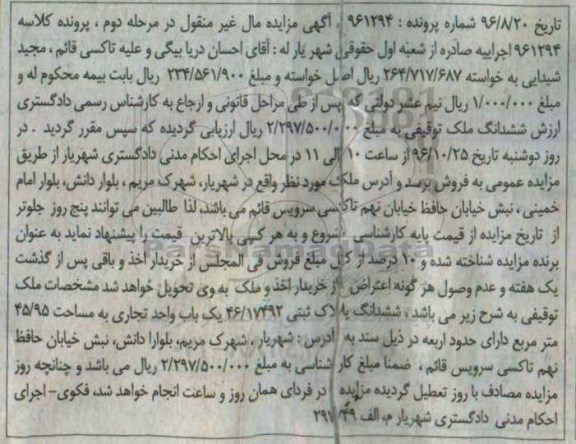 تاریخ ۹۶/۸/۲۰ شماره پرونده : ۹۶۱۲۹۴ ، آگهی مزایده مال غیر منقول در مرحله دوم ، پرونده کلاسه
۹۶۱۲۹۴ اجراییه صادره از شعبه اول حقوقی شهر یار له : آقای احسان دریا بیگی و علیه تاکسی قائم ، مجید
شیدایی به خواسته ۲۶۴/۷۱۷/۶۸۷ ریال اصل خواسته و مبلغ ۲۳۴/۵۶۱/۹۰۰ ریال بابت بیمه محکوم له و
مبلغ ۱/۰۰۰/۰۰۰ ریال نیم عشر دولتی که پس از طی مراحل قانونی و ارجاع به کارشناس رسمی دادگستری
ارزش ششدانگ ملک توقیفی به مبلغ ۲/۲۹۷/۵۰۰/۰۰۰ ریال ارزیابی گردیده که سپس مقرر گردید . در
روز دوشنبه تاریخ ۹۶/۱۰/۲۵ از ساعت ۱۰ الی ۱۱ در محل اجرای احکام مدنی دادگستری شهریار از طریق
مزایده عمومی به فروش برسد و آدرس ملک مورد نظر واقع در شهریار، شهرک مریم ، بلوار دانش، بلوار امام
خمینی ، نبش خیابان حافظ خیابان نهم تاکسی سرویس قائم می باشد، لذا طالبین می توانند پنج روز جلوتر
از تاریخ مزایده از قیمت پایه کارشناسی شروع و به هر کسی بالاترین قیمت را پیشنهاد نماید به عنوان
برنده مزایده شناخته شده و ۱۰ درصد از کل مبلغ فروش فی المجلس از خریدار اخذ و باقی پس از گذشت
یک هفته و عدم وصول هر گونه اعتراض از خریدار اخذ و ملک به وی تحویل خواهد شد مشخصات ملک
توقیفی به شرح زیر می باشد ، ششدانگ پلاک ثبتی ۴۶/۱۷۴۹۲ یک باب واحد تجاری به مساحت ۴۵/۹۵
متر مربع دارای حدود اربعه در ذیل سند به آدرس : شهریار ، شهرک مریم، بلوارا دانش، نبش خیابان حافظ
نهم تاکسی سرویس قائم ، ضمنا مبلغ کارشناسی به مبلغ ۲/۲۹۷/۵۰۰/۰۰۰ ریال می باشد و چنانچه روز
مزایده مصادف با روز تعطیل گردیده مزایده در فردای همان روز و ساعت انجام خواهد شد، فکوی- اجرای
احکام مدنی دادگستری شهریار م، الف ۲۹۱/۴۹